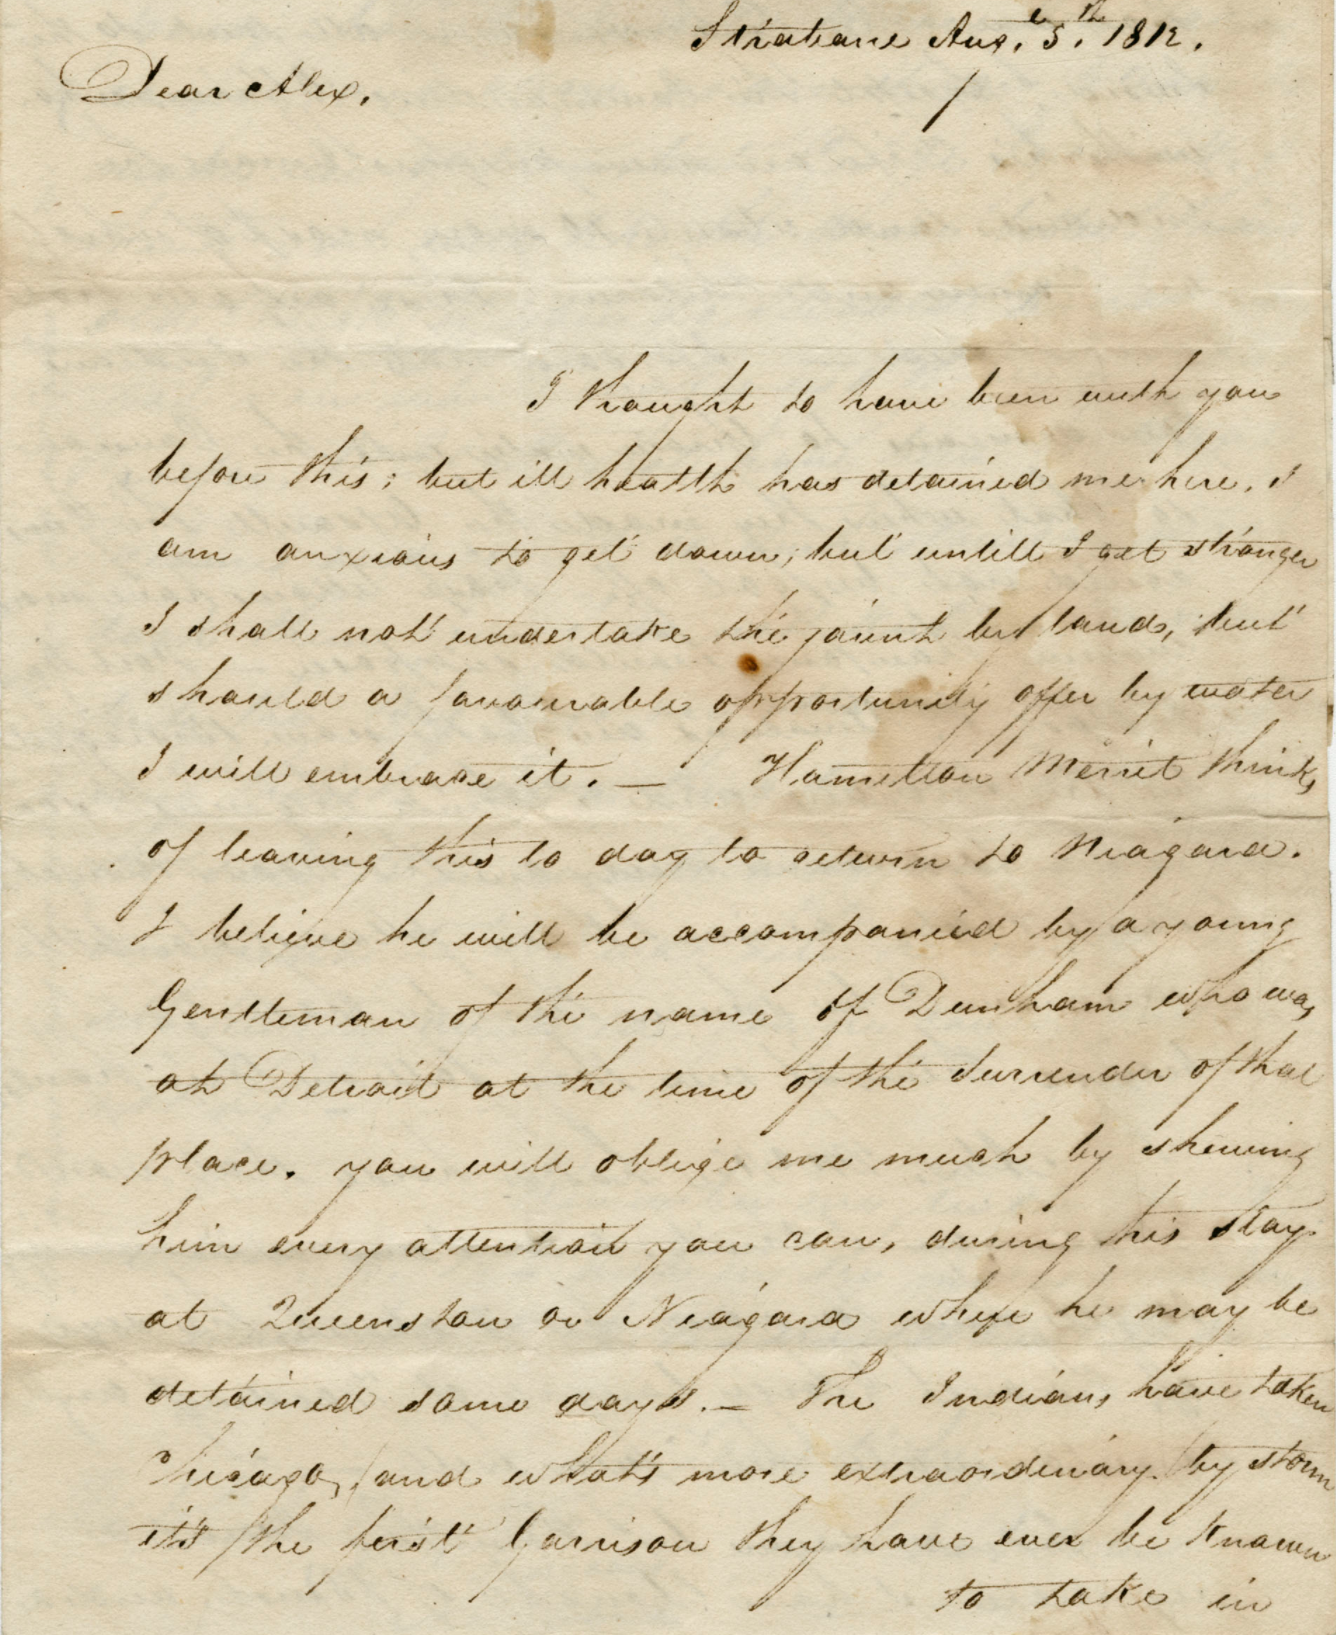 Strabane Aug.t 5.th 1812.
Dear Alex,
I thought to have been with you
before this; but ill health has detained me here. I
am anxious to get down; but untill I get stronger
I shall not undertake the jaunt by land, but
should a favourable opportunity offer by water
I will embrace it. — Hamelton Merrit thinks
of leaving this to day to return to Niagara.
I believe he will be accompanied by a young
Gentleman of the name of Dunham who was
at Detroit at the time of the Surrender of that
place. you will oblige me much by shewing
him every attention you can, during his stay
at Queenston or Niagara where he may be
detained some days. — The Indians have taken
Chicago, (and what's more extraordinary) by storm
it's the first Garrison they have ever be known
to take in